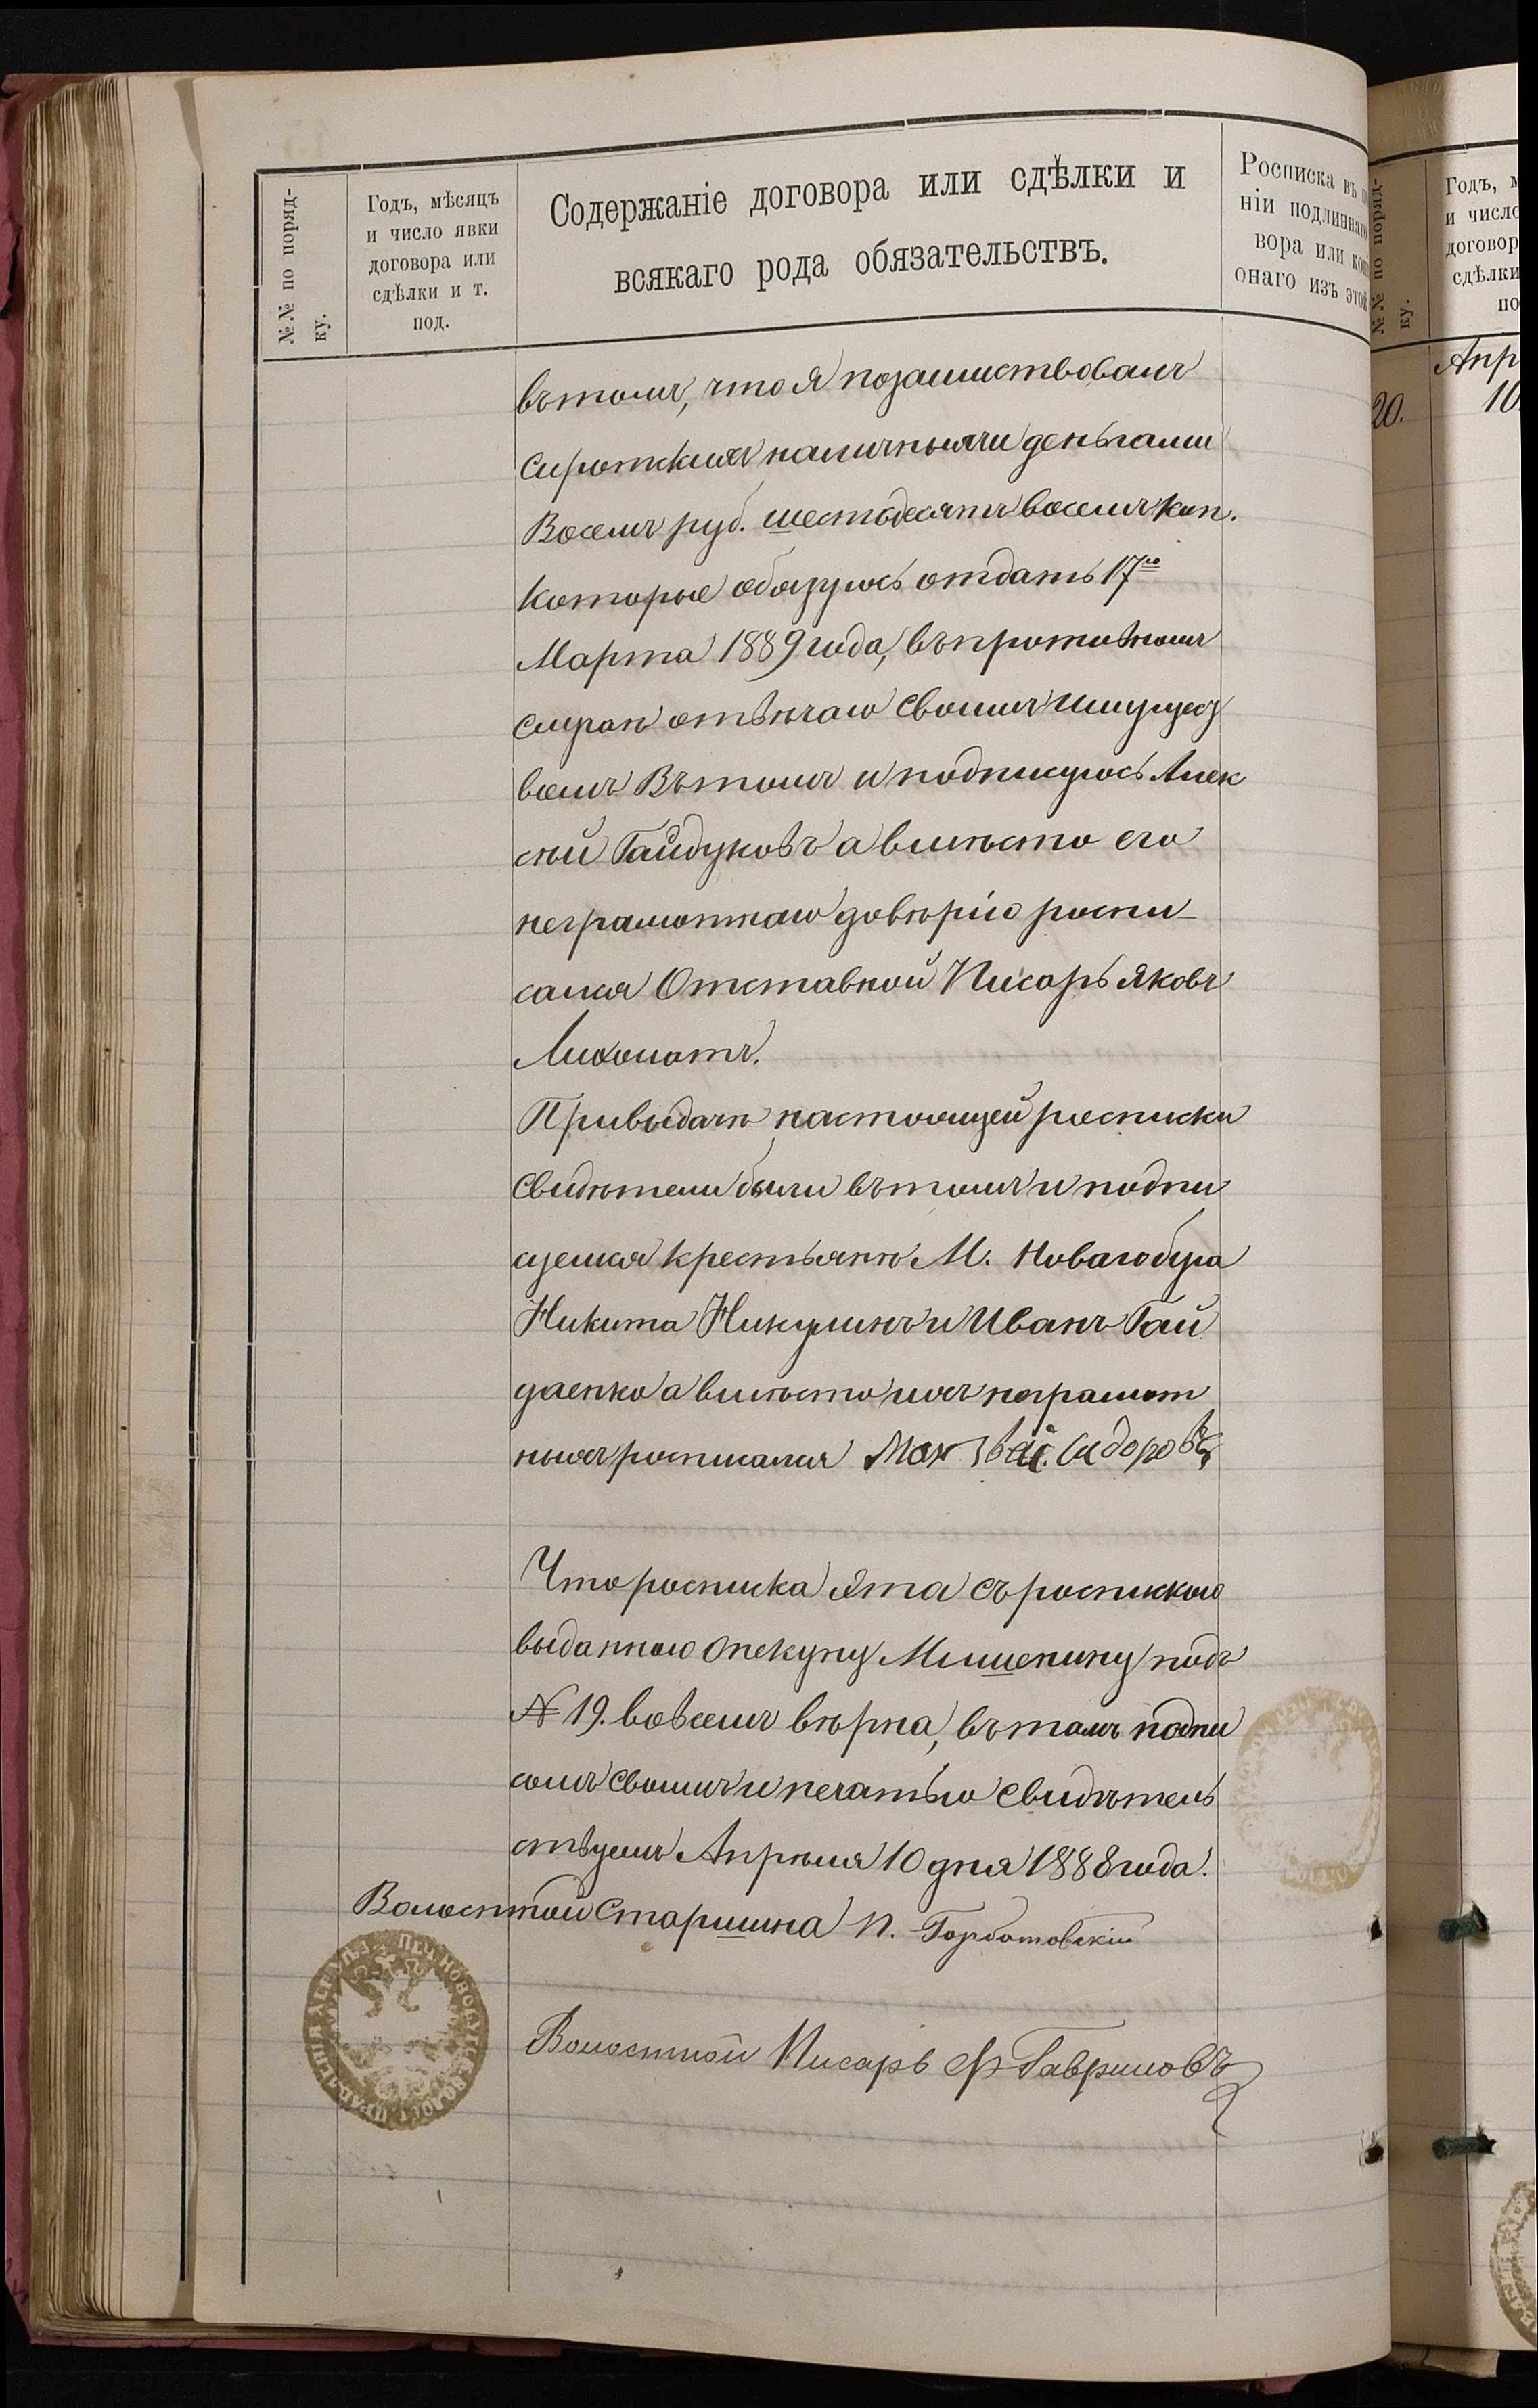 №№ по поряд-
ку.
Годъ, мѣсяцъ
и число явки
договора или
сдѣлки и т.
под.
Содержаніе договора или сдѣлки и
всякаго рода обязательствъ.
Росписка въ
ніи подлиннаго
вора или коп
онаго изъ этой
въ томъ, что я позаимствовалъ
сиротскихъ наличными деньгами
Восемь руб. шестьдесятъ восемь коп.
которые обязуюсь отдать 17го
Марта 1889 года, въ противномъ
случаѣ отвѣчаю своимъ имущес
вомъ Въ томъ и подпишусь Алек
сѣй Гайдуковъ а вмѣсто его
неграмотнаго довѣрію роспи-
сался Отставной Писарь Яковъ
Лихопотъ.
При выдачѣ настоящей росписки
свидѣтели были въ томъ и подпи
шемся крестьяне М. Новагобуга
Никита Никулинъ и Иванъ Гай
даенко а вмѣсто ихъ неграмот
ныхъ росписался Матвѣй Сидоровъ
Что росписка эта съ роспискою
выданною опекуну Мишенину подъ
№ 19. во всемъ вѣрна, въ томъ подпи
сомъ своимъ и печатью свидѣтель
ствуемъ Апрѣля 10 дня 1888 года.
Волостной Старшина П. Горбатовскій
Волостной Писарь Ф Гавриловъ
№№ по поряд-
ку.
Годъ, м
и число
договор
сдѣлки
по
20.
Апр
10